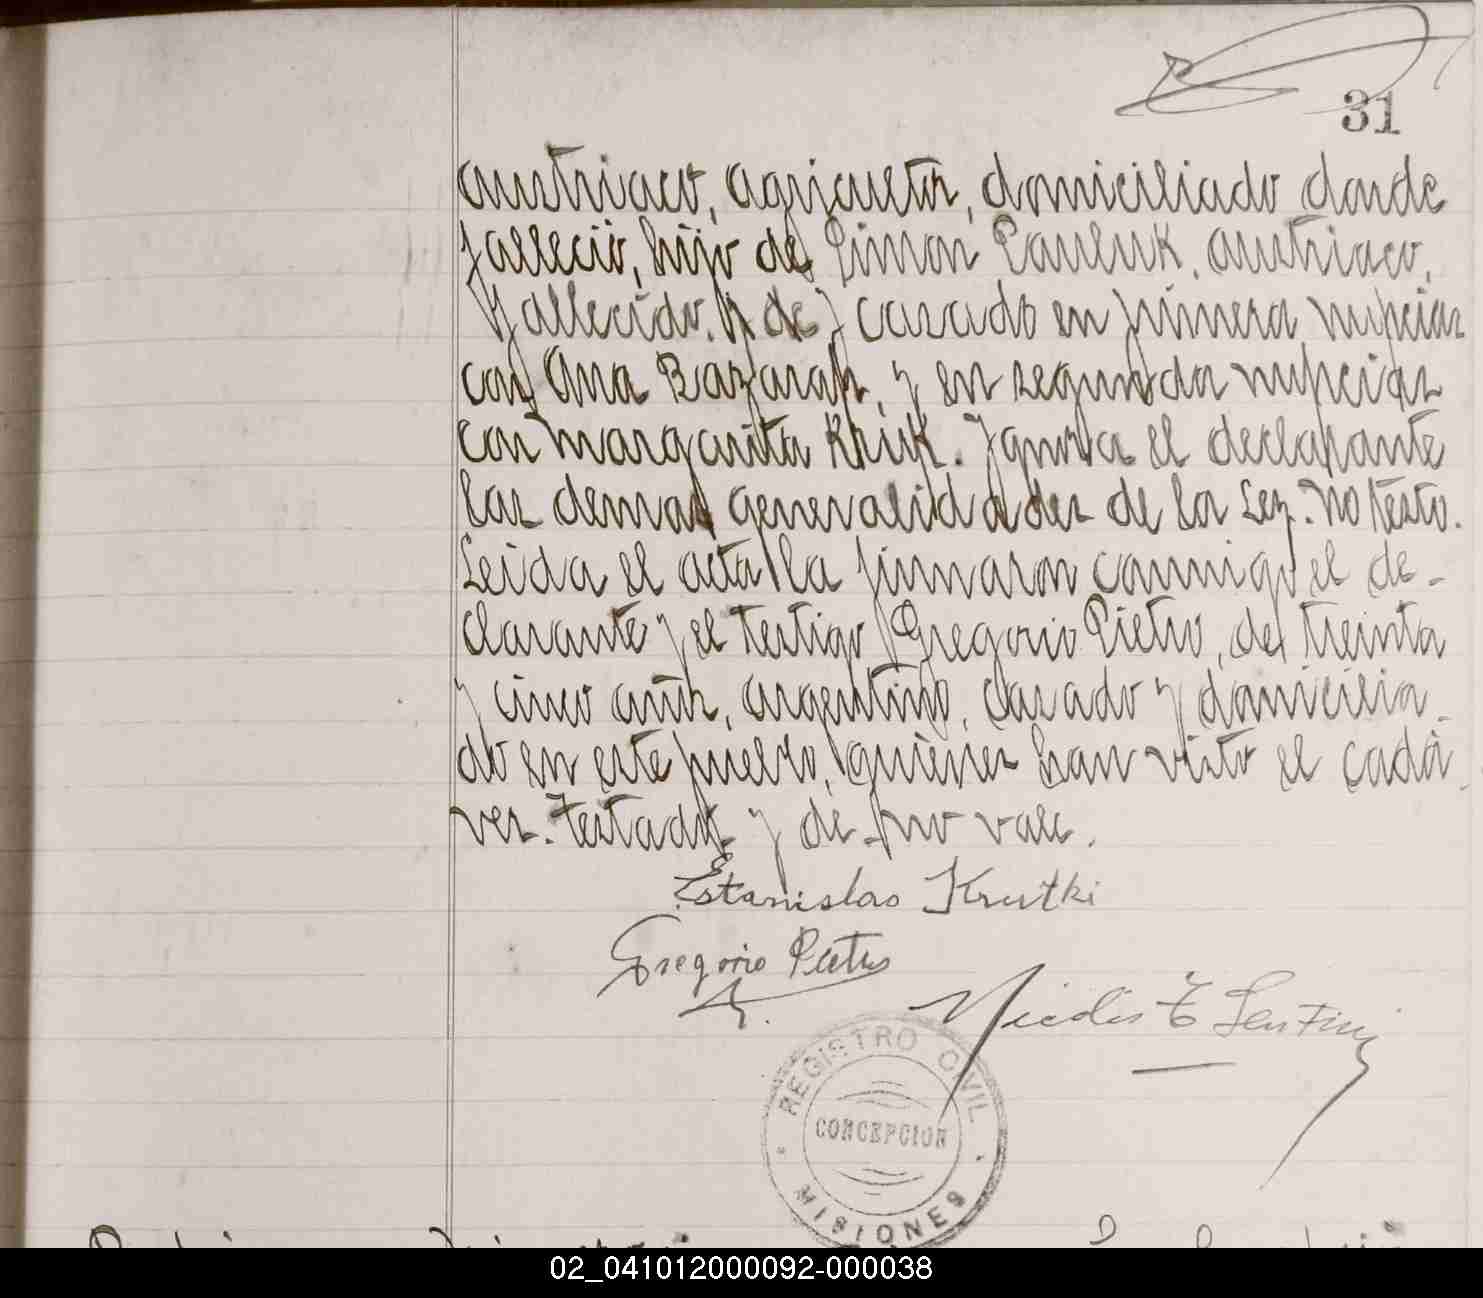 31
austriaco, agricultor, domiciliado donde
falleció, hijo de Simon Pauluk, austriaco,
fallecido. y de, casado en primera nupcias
con Ana y en segunda nupcias
con Margarita Kruk. Ignora el declarante
las demas generalidades de la Ley. No testo.
Leida el acta la firmaron conmigo el de-
clarante y el testigo Gregorio Pietro, de treinta
y cinco años, argentino, casado y domicilia-
do en este pueblo, quienes han visto el cadá
ver. Testado y de no vale.
Estanislao Krutki
Gregorio Pietro
REGISTRO CIVIL
CONCEPCION
MISIONES
02_041012000092-000038